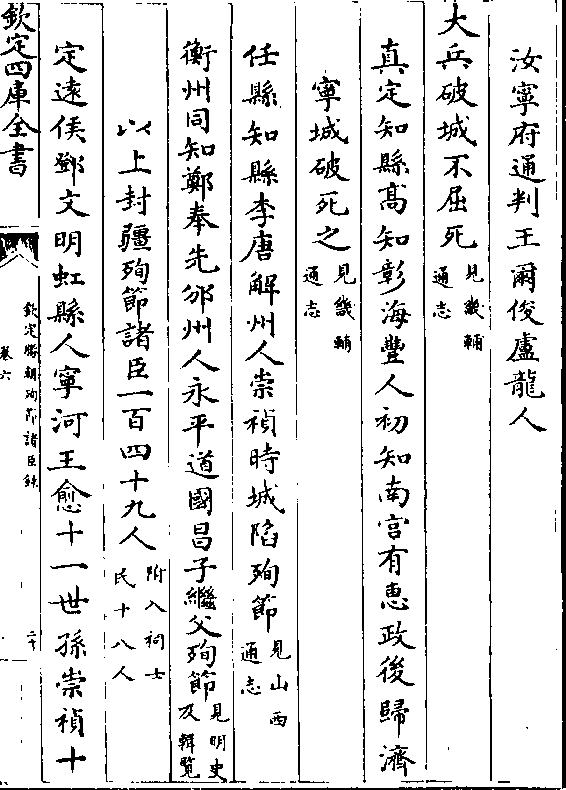 汝寧府通判王爾俊盧龍人
大兵破城不屈死見畿輔通志
真定知縣高知彰海豐人初知南宫有惠政後歸濟
寧城破死之見畿輔通志
任縣知縣李唐解州人崇禎時城陷殉節見山西通志
衡州同知鄭奉先邠州人永平道國昌子繼父殉節見明史及輯覽
以上封疆殉節諸臣一百四十九人附入祠士民十八人
定逺侯鄧文明虹縣人寧河王愈十一世孫崇禎十
欽定四庫全書
欽定勝朝殉節諸臣録
卷六
二十